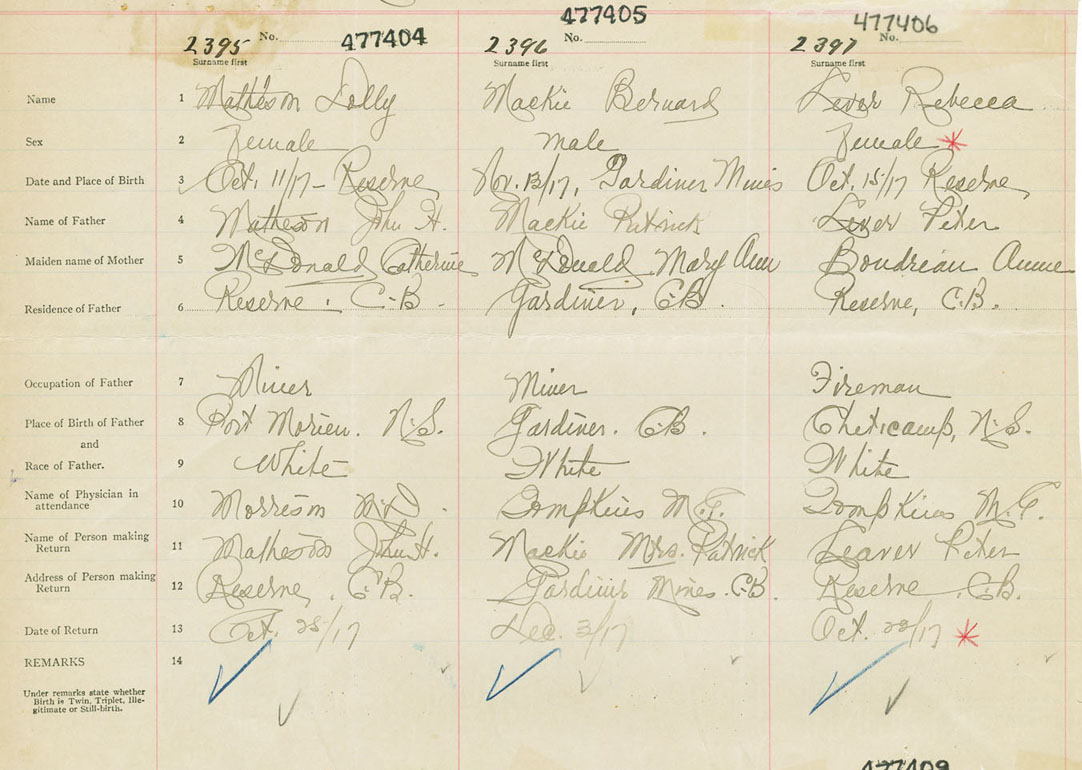 477404 477405 477406
2395 No. 2396 No. 2397 No.
Surname first Surname first Surname first
Name 1 Matheson Dolly Mackie Bernard Lever Rebecca
Sex 2 Female male Female *
Date and Place of Birth 3 Oct. 11/17 - Reserve Nov. 13/17, Gardiner Mines Oct. 15/17 Reserve
Name of Father 4 Matheson John H. Mackie Patrick Lever Peter
Maiden name of Mother 5 McDonald Catherine McDonald Mary Ann Boudreau Annie
Residence of Father 6 Reserve, C.B. Gardiner, C.B. Reserve, C.B.
Occupation of Father 7 Miner Miner Fireman
Place of Birth of Father 8 Port Morien. N.S. Gardiner. C.B. Cheticamp, N.S.
and
Race of Father. 9 White White White
Name of Physician in
attendance 10 Morrison M.D. Tompkins M.G. Tompkins M.G.
Name of Person making
Return 11 Matheson John H. Mackie Mrs. Patrick Leaver Peter
Address of Person making
Return 12 Reserve, C.B. Gardiner Mines. C.B. Reserve, C.B.
Date of Return 13 Oct. 25/17 Dec. 3/17 Oct. 28/17 *
REMARKS 14
Under remarks state whether
Birth is Twin, Triplet, Ille-
gitimate or Still-birth.
477409